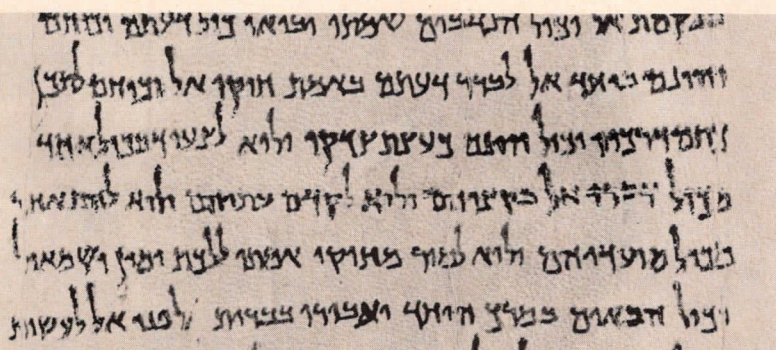 בנקמת אל וכול הנדבים לאמתו יביאו כול דעתם וכוחם
והונם ביחד אל לברר דעתם באמת חוקי אל וכוחם לתכן
כתם דרכיו וכול הונם כעצת צדקו ולוא לצעוד בכול אחד
מכול דברי אל בקציהם ולוא לקדם עתיהם ולוא להתאחר
מכול מועדיהם ולוא לסור מחוקי אמתו ללכת ימין ושמאול
וכול הבאים בסרך היחד יעבורו בברית לפני אל לעשות